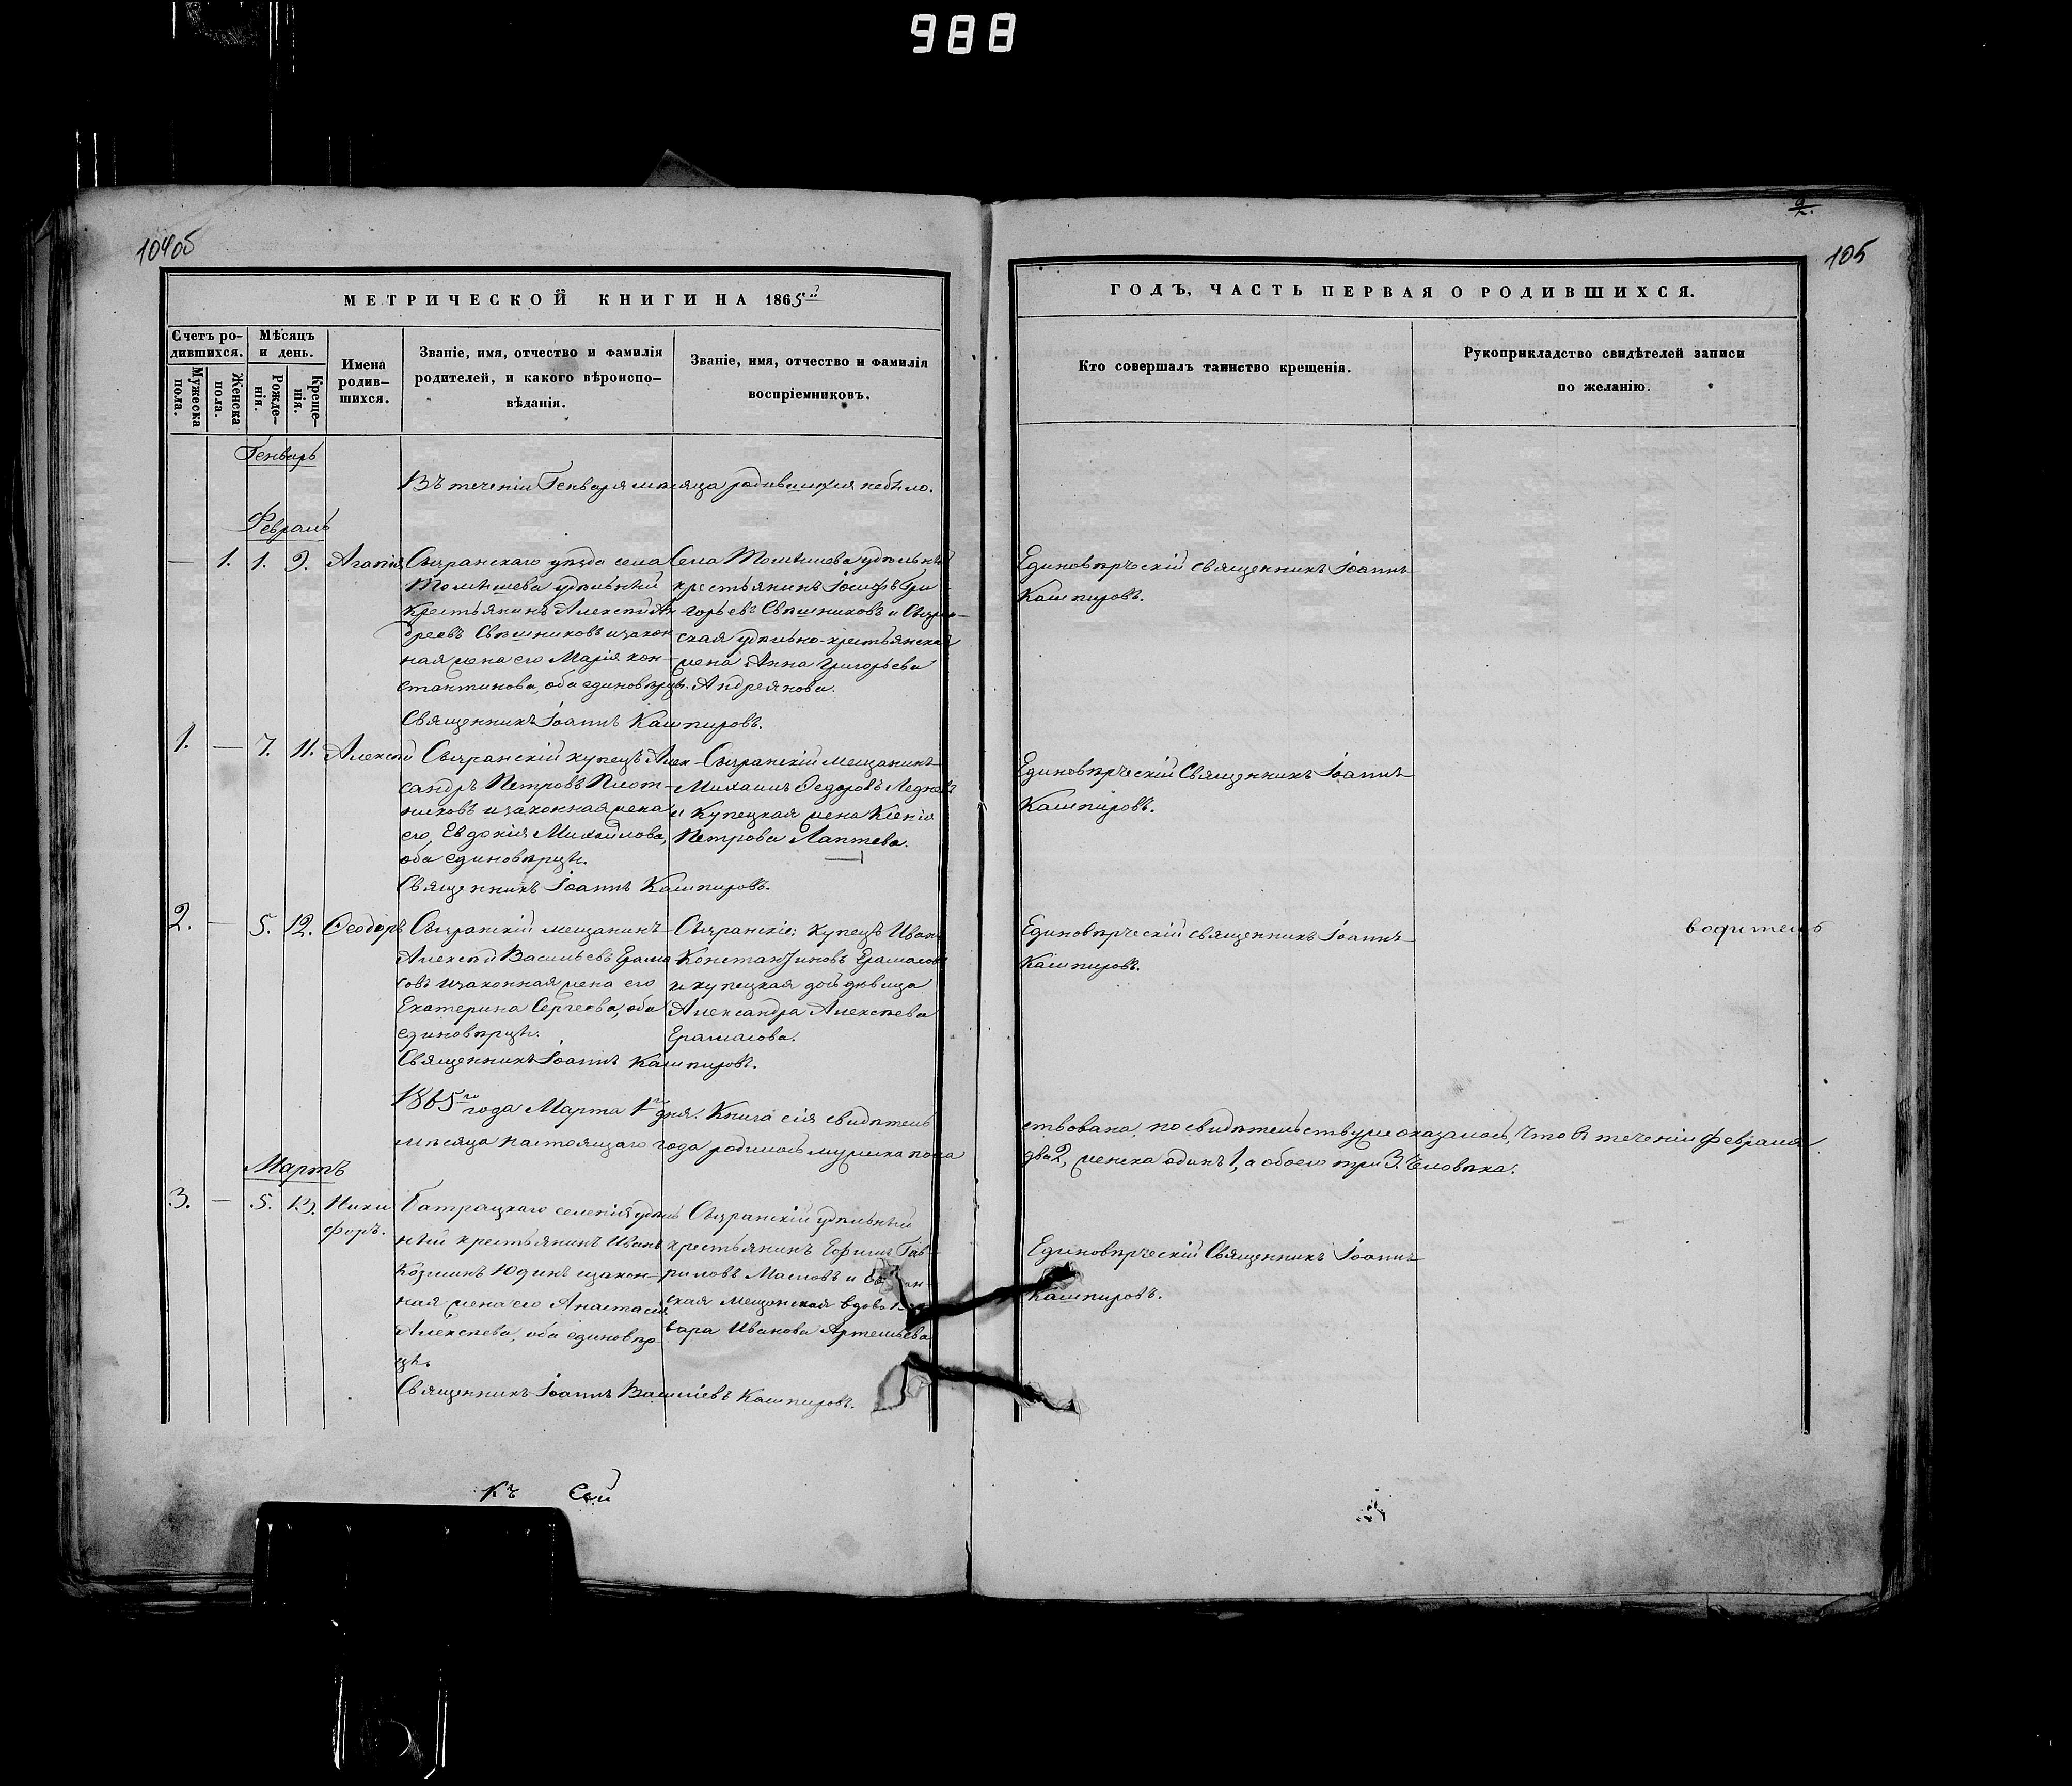 988
104об
105
МЕТРИЧЕСКОЙ КНИГИ НА 1865й
Счетъ родившихся.
Мѣсяцъ и день.
Мужеска пола.
Женска пола.
Рожденія.
Крещенія.
Имена родившихся.
Званіе, имя, отчество и фамилія
родителей, и какого вѣроиспо-
вѣданія.
Званіе, имя, отчество и фамилія
воспріемниковъ.
Генварь
Въ теченіи Генваря мѣсяца родившихся небыло.
Февраль
— 1. 1. 9. Агапія
Сызранскаго уѣзда села
Томышева удѣльный
крестьянинъ Алексѣй Ан
дреевъ Свѣшниковъ изакон
ная жена его Марія кон-
стантинова, оба единовѣрцы.
Села Томышева удѣльный
крестьянинъ Іосифъ Гри
горьевъ Свѣшниковъ и Сызран-
ская удѣльно-крестьянская
жена Анна Григорьева
Андреянова.
Священникъ Іоаннъ Кашпировъ.
1. — 7. 11. Алексѣй
Сызранскій купецъ Алек-
сандръ Петровъ Плот-
никовъ изаконная жена
его, Евдокія Михайлова,
оба единовѣрцы.
Сызранскій мещанинъ
Михаилъ Федоровъ Леднёвъ
и Купецкая жена Ксенія
Петрова Лаптева.
Священникъ Іоаннъ Кашпировъ.
2. — 5. 12. Феодоръ
Сызранскій мещанинъ
Алексѣй Васильевъ Ерама
совъ изаконная жена его
Екатерина Сергеева, оба
единовѣрцы.
Сызранскіе: купецъ Иванъ
Константиновъ Ерамасовъ
и купецкая дочь дѣвица
Александра Алексѣева
Ерамасова.
Священникъ Іоаннъ Кашпировъ.
1865го года Марта 1го дня. Книга сія свидѣтель
мѣсяца настоящаго года родилось мужеска пола
Мартъ
3. — 5. 13. Ники
форъ.
Батрацкаго селенія удѣль
ный крестьянинъ Иванъ
Козминъ Юдинъ изакон-
ная жена его Анастасія
Алексѣева, оба единовѣр
цы.
Сызранскій удѣльный
крестьянинъ Ефимъ Гав-
риловъ Масловъ и
ская мещанская вдова
вара Иванова Артемьева
Священникъ Іоаннъ Васильевъ Кашпировъ.
Къ Сей
ГОДЪ, ЧАСТЬ ПЕРВАЯ О РОДИВШИХСЯ.
Кто совершалъ таинство крещенія.
Рукоприкладство свидѣтелей записи
по желанію.
Единовѣрческій священникъ Іоаннъ
Кашпировъ.
Единовѣрческій Священникъ Іоаннъ
Кашпировъ.
Единовѣрческій священникъ Іоаннъ
Кашпировъ.
водитель
ствована, по свидѣтельству же оказалось, что въ теченіи Февраля
два 2, женска одинъ 1, а обоего три 3. Человѣка.
Единовѣрческій Священникъ Іоаннъ
Кашпировъ.